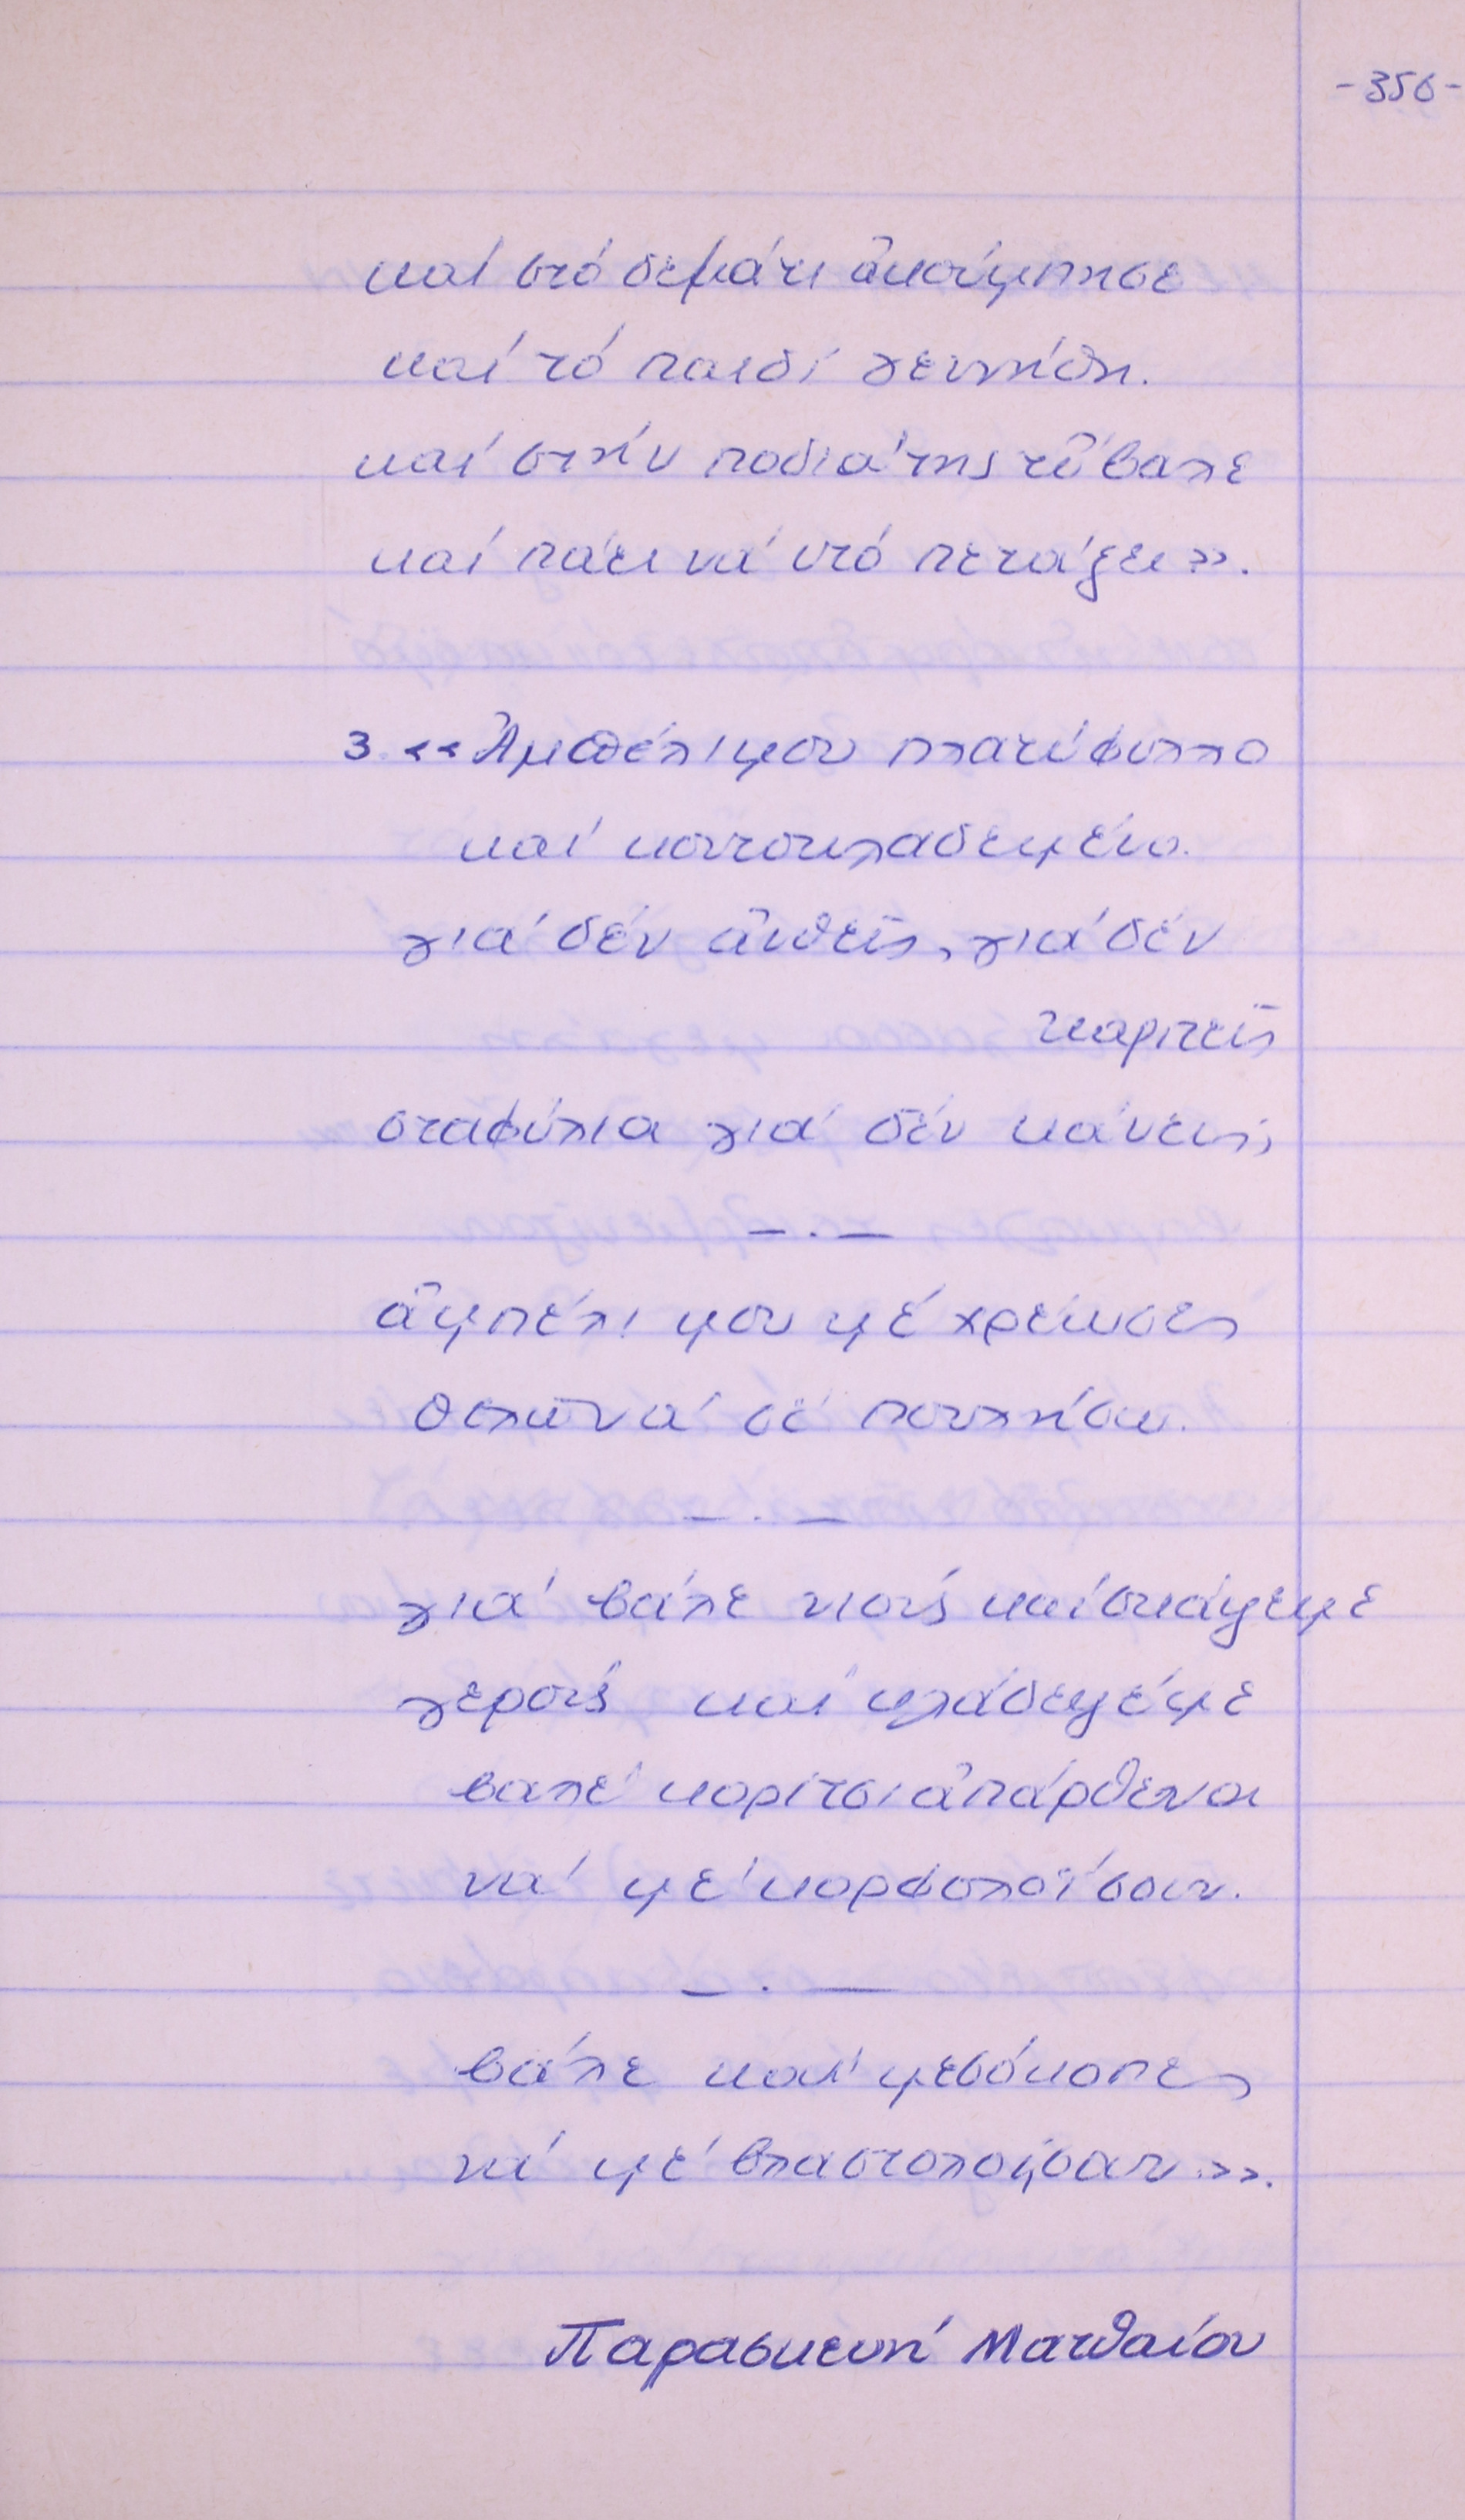 -356-
καί στό δεμάτι ἀκούμπησε
καί τό παιδί γεννήθη.
καί στήν ποδιά της τὄβαλε
καί πάει νά τό πετάξει».
3. «Ἀμπέλι μου πλατύφυλλο
καί κοντοκλαδεμένο.
γιά δέν ἀνθεῖς, γιά δέν
καρπεῖς
σταφύλια γιά δέν κάνεις;
— . —
ἀμπέλι μου μέ χρέωσες
θελω νά σέ πουλήσω.
— . —
γιά βάλε νιούς καί σκάψεμε
γερούς καί κλάδεψέμε
βαλέ κορίτσια πάρθενοι
νά μέ κορφολοΐσουν.
— . —
βάλε καί μεσόκοπες
νά μέ βλαστολοήσαν».
Παρασκευή Ματθαίου